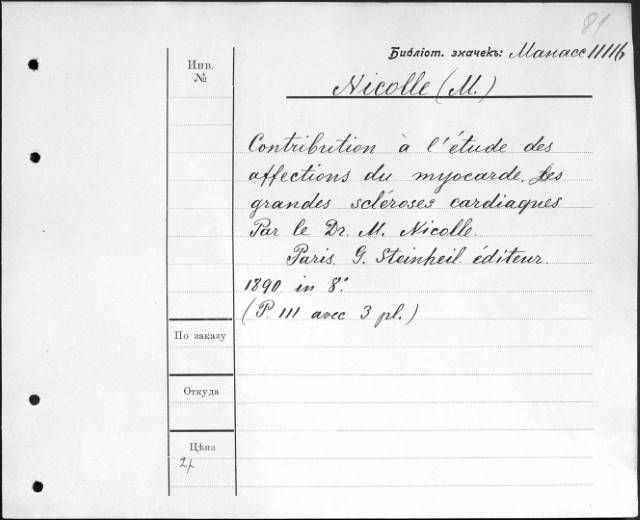 81
Библіот. значекъ: Манасс 11116
Инв.
№
Nicolle (M.)
Contribution à l'étude des
affections du myocarde. Les
grandes scléroses cardiaques
Par le Dr. M. Nicolle.
Paris. G. Steinheil éditeur.
1890 in 8°.
(P. 111 avec 3 pl.)
По заказу
Откуда
Цѣна